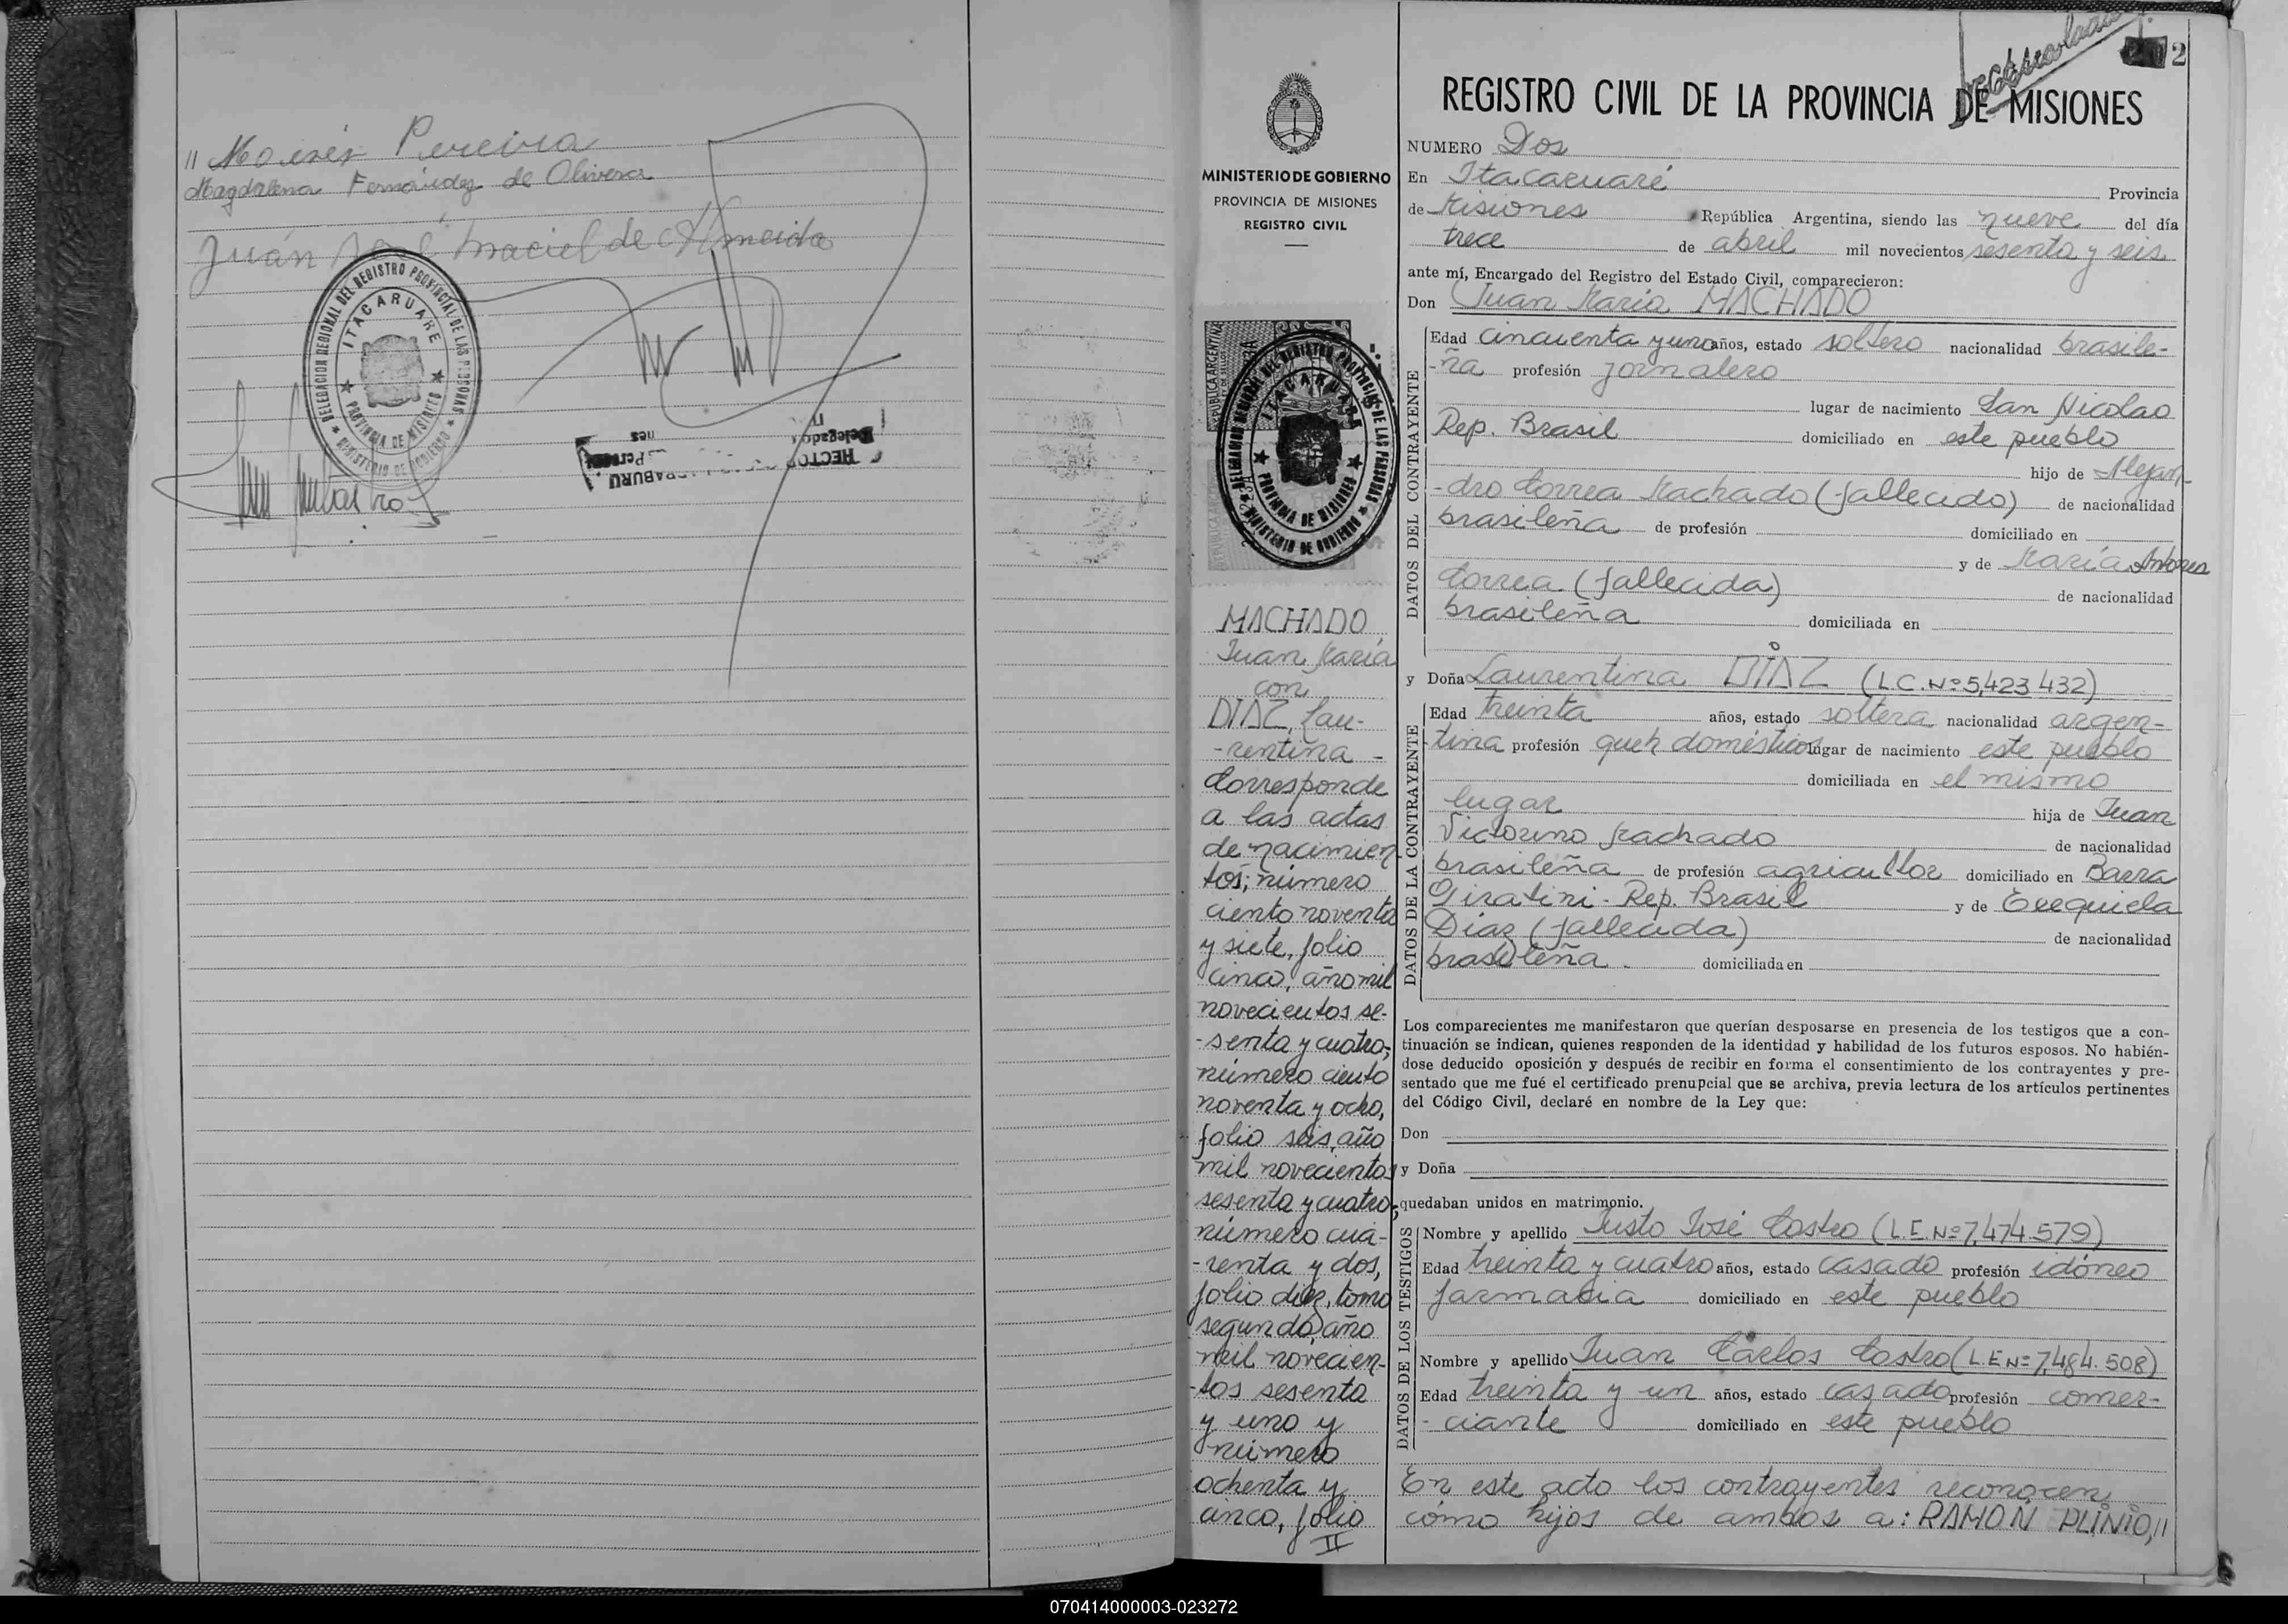 " Moisés Pereira
Magdalena Fernández de Olivera
Juán José Maciel de Almeida
DELEGACION REGIONAL DEL REGISTRO PROVINCIAL DE LAS PERSONAS
ITACARUARE
PROVINCIA DE MISIONES
MINISTERIO DE GOBIERNO
HECTOR
Delegado
MINISTERIO DE GOBIERNO
PROVINCIA DE MISIONES
REGISTRO CIVIL
REPUBLICA ARGENTINA
DELEGACION REGIONAL DEL REGISTRO PROVINCIAL DE LAS PERSONAS
ITACARUARE
PROVINCIA DE MISIONES
MINISTERIO DE GOBIERNO
MACHADO,
Juan María
con
DIAZ, Lau-
-rentina -
Corresponde
a las actas
de nacimien
tos; número
ciento noventa
y siete, folio
cinco, año mil
novecientos se-
-senta y cuatro;
número ciento
noventa y ocho,
folio seis, año
mil novecientos
sesenta y cuatro;
número cua-
-renta y dos,
folio diez, tomo
segundo, año
mil novecien-
-tos sesenta
y uno y
número
ochenta y
cinco, folio
II
2
REGISTRO CIVIL DE LA PROVINCIA DE MISIONES
NUMERO Dos
En Itacaruaré Provincia
de Misiones República Argentina, siendo las nueve del día
trece de abril mil novecientos sesenta y seis
ante mí, Encargado del Registro del Estado Civil, comparecieron:
Don Juan María MACHADO
DATOS DEL CONTRAYENTE
Edad cincuenta y uno años, estado soltero nacionalidad brasile-
-ña profesión jornalero
lugar de nacimiento San Nicolao
Rep. Brasil domiciliado en este pueblo
hijo de Alejan-
-dro Correa Machado (fallecido) de nacionalidad
brasileña de profesión domiciliado en
y de María Antonia
Correa (fallecida) de nacionalidad
brasileña domiciliada en
y Doña Laurentina DIAZ (L.C.Nº 5,423432)
DATOS DE LA CONTRAYENTE
Edad treinta años, estado soltera nacionalidad argen-
-tina profesión queh domésticos lugar de nacimiento este pueblo
domiciliada en el mismo
lugar hija de Juan
Victorino Machado de nacionalidad
brasileña de profesión agricultor domiciliado en Barra
Piratini - Rep. Brasil y de Exequiela
Díaz (fallecida) de nacionalidad
brasileña. domiciliada en
Los comparecientes me manifestaron que querían desposarse en presencia de los testigos que a con-
tinuación se indican, quienes responden de la identidad y habilidad de los futuros esposos. No habién-
dose deducido oposición y después de recibir en forma el consentimiento de los contrayentes y pre-
sentado que me fué el certificado prenupcial que se archiva, previa lectura de los artículos pertinentes
del Código Civil, declaré en nombre de la Ley que:
Don
y Doña
quedaban unidos en matrimonio.
DATOS DE LOS TESTIGOS
Nombre y apellido Justo José Castro (L.E.Nº 7,474.579)
Edad treinta y cuatro años, estado casado profesión idóneo
farmacia domiciliado en este pueblo
Nombre y apellido Juan Carlos Castro (L.E Nº 7,484.508)
Edad treinta y un años, estado casado profesión comer-
-ciante domiciliado en este pueblo
En este acto los contrayentes reconocen
cómo hijos de ambos a: RAMON PLINIO, "
070414000003-023272